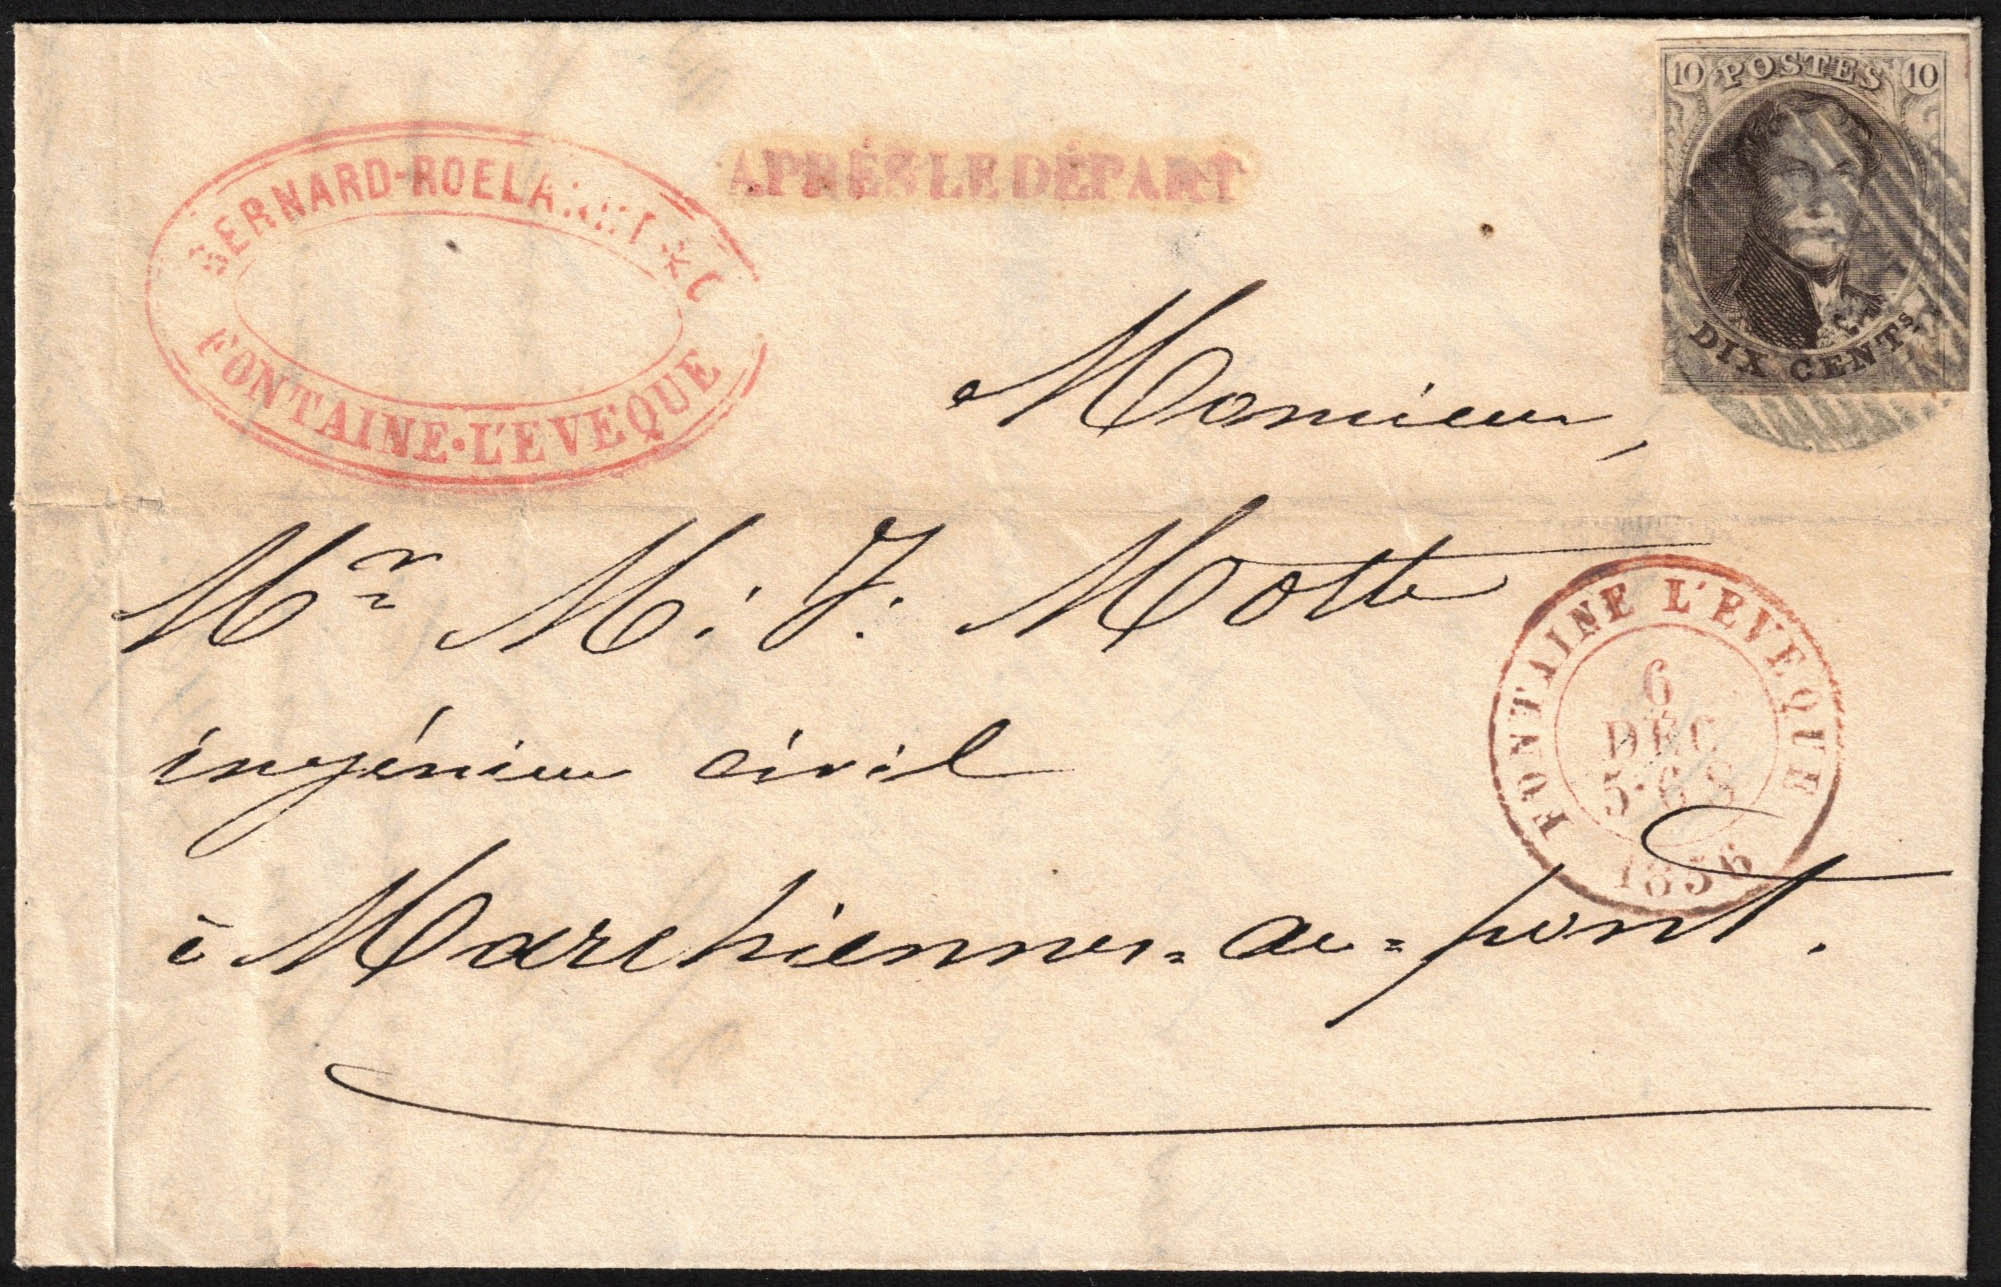 10 POSTES 10
DIX CENTS
APRÈS LE DÉPART
BERNARD-ROELANDT & C
FONTAINE-L'EVEQUE
Monsieur,
Mr M: J: Motte
ingénieur civil
à Marchiennes=au=pont.
FONTAINE L'EVEQUE
6
DEC
5-6 S
1856